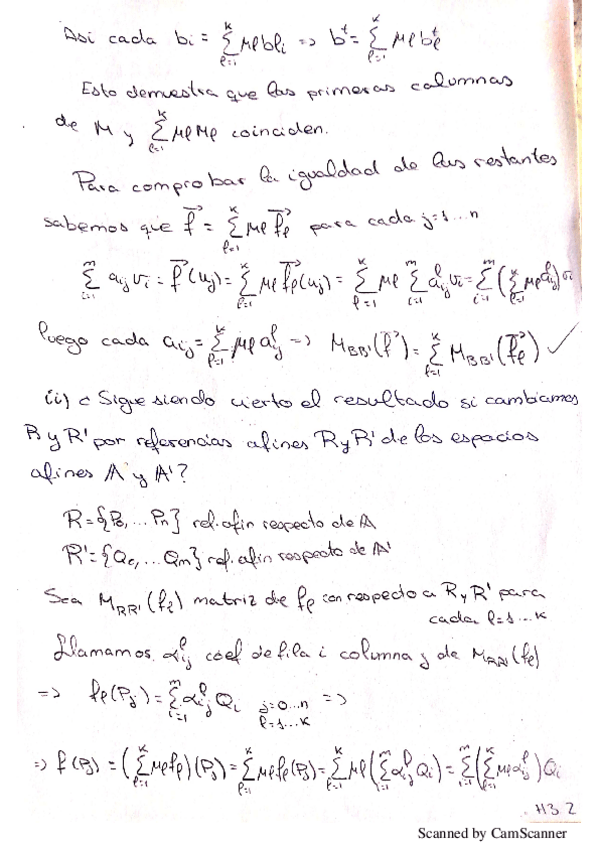 Así cada bᵢ = Σ_{ℓ=1}^{k} μℓ bℓᵢ => bᵗ = Σ_{ℓ=1}^{k} μℓ bℓᵗ
Esto demuestra que las primeras columnas
de M y Σ_{ℓ=1}^{k} μℓ Mℓ coinciden.
Para comprobar la igualdad de las restantes
sabemos que f⃗ = Σ_{ℓ=1}^{k} μℓ f⃗ℓ para cada j=1...n
Σ_{i=1}^{m} aᵢⱼ vᵢ = f⃗(uⱼ) = Σ_{ℓ=1}^{k} μℓ f⃗ℓ(uⱼ) = Σ_{ℓ=1}^{k} μℓ Σ_{i=1}^{m} aᵢⱼ^ℓ vᵢ = Σ_{i=1}^{m} (Σ_{ℓ=1}^{k} μℓ aᵢⱼ^ℓ) vᵢ
luego cada aᵢⱼ = Σ_{ℓ=1}^{k} μℓ aᵢⱼ^ℓ => M_{BB'}(f⃗) = Σ_{ℓ=1}^{k} M_{BB'}(f⃗ℓ) ✓
(ii) ¿Sigue siendo cierto el resultado si cambiamos
R y R' por referencias afines R y R' de los espacios
afines A y A'?
R = {P₀, ... Pₙ} ref. afin respecto de A
R' = {Q₀, ... Qₘ} ref. afin respecto de A'
Sea M_{RR'}(fℓ) matriz de fℓ con respecto a R y R' para
cada ℓ=1...k
Llamamos αᵢⱼ^ℓ coef de fila i columna j de M_{RR'}(fℓ)
=> fℓ(Pⱼ) = Σ_{i=1}^{m} αᵢⱼ^ℓ Qᵢ j=0...n ℓ=1...k =>
=> f(Pⱼ) = (Σ_{ℓ=1}^{k} μℓ fℓ)(Pⱼ) = Σ_{ℓ=1}^{k} μℓ fℓ(Pⱼ) = Σ_{ℓ=1}^{k} μℓ (Σ_{i=1}^{m} αᵢⱼ^ℓ Qᵢ) = Σ_{i=1}^{m} (Σ_{ℓ=1}^{k} μℓ αᵢⱼ^ℓ) Qᵢ
H3.2
Scanned by CamScanner